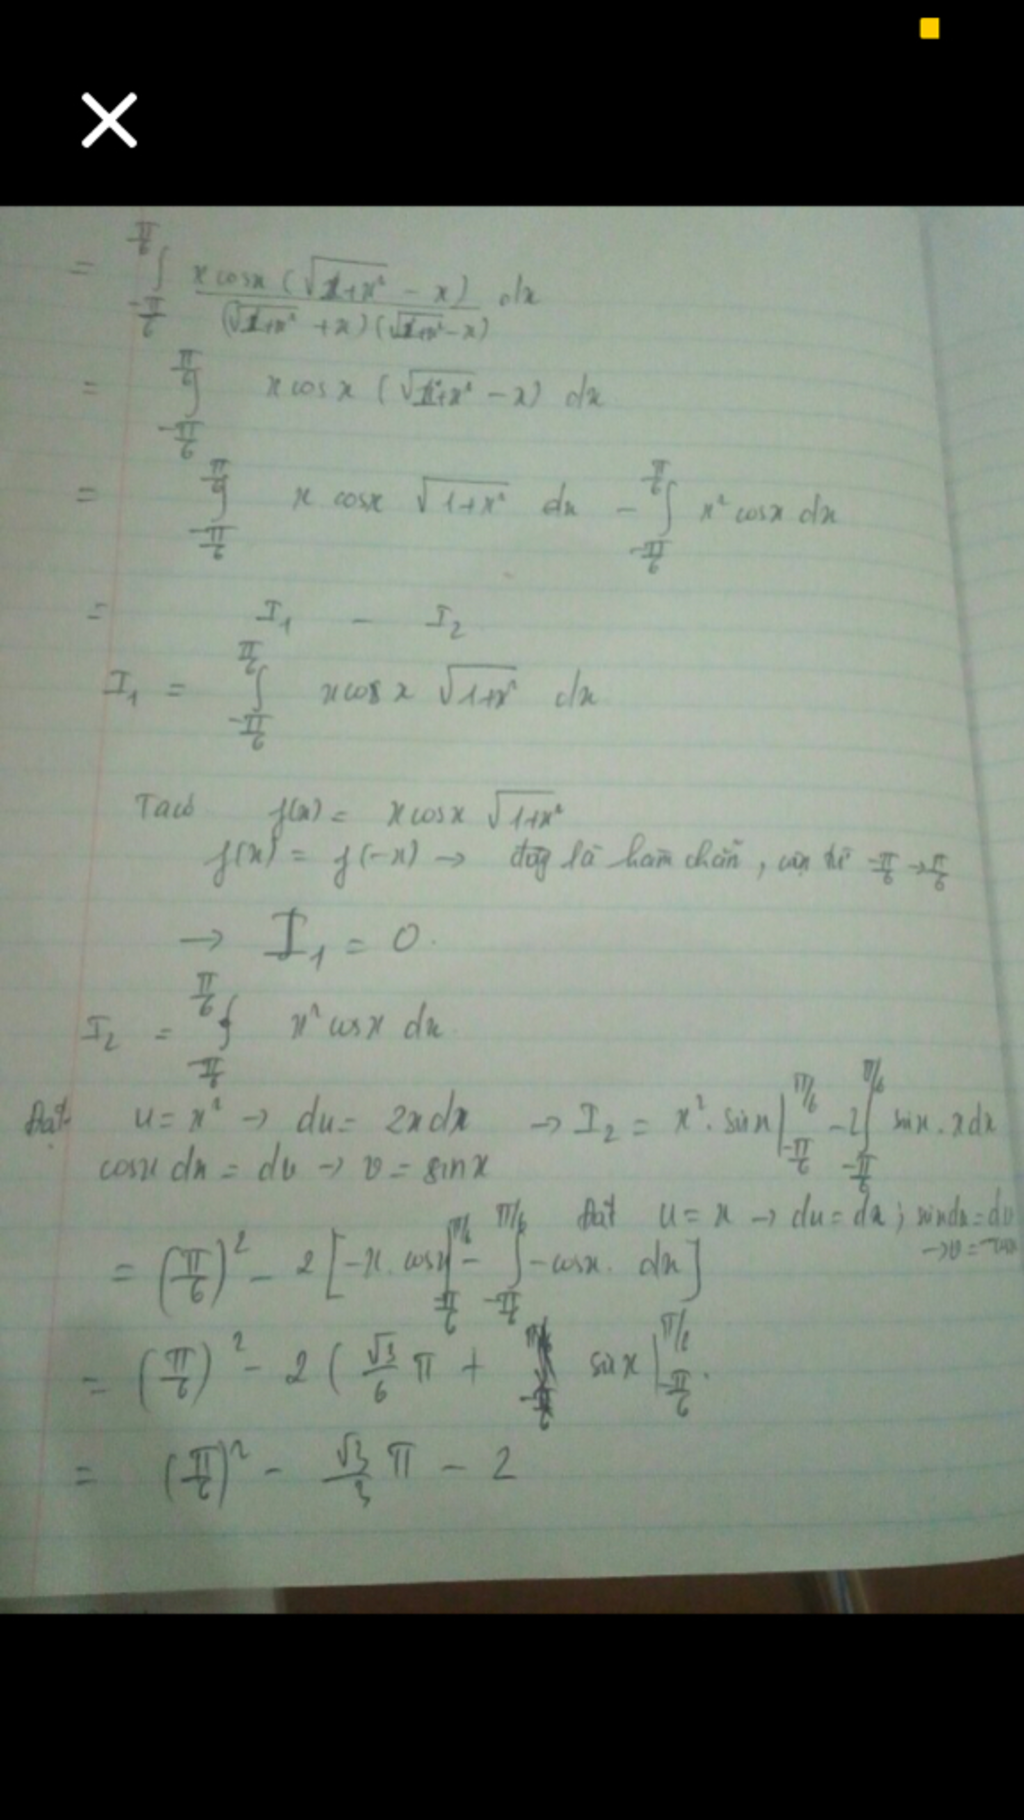 = ∫_{-π/6}^{π/6} x cosx (√(1+x²) - x) / (√(1+x²) + x)(√(1+x²) - x) dx
= ∫_{-π/6}^{π/6} x cosx (√(1+x²) - x) dx
= ∫_{-π/6}^{π/6} x cosx √(1+x²) dx - ∫_{-π/6}^{π/6} x² cosx dx
= I₁ - I₂
I₁ = ∫_{-π/6}^{π/6} x cosx √(1+x²) dx
Ta có f(x) = x cosx √(1+x²)
f(x) = f(-x) → đây là hàm chẵn, cận từ -π/6 → π/6
→ I₁ = 0.
I₂ = ∫_{-π/6}^{π/6} x² cosx dx
Đặt u = x² → du = 2x dx → I₂ = x². sinx |_{-π/6}^{π/6} - 2∫_{-π/6}^{π/6} sinx . x dx
cosx dx = dv → v = sinx
Đặt u = x → du = dx ; sinx dx = dv
→ v = -cosx
= (π/6)² - 2 [-x. cosx |_{-π/6}^{π/6} - ∫_{-π/6}^{π/6} -cosx. dx]
= (π/6)² - 2 (√3/6 π + sinx |_{-π/6}^{π/6}.
= (π/6)² - √3/3 π - 2